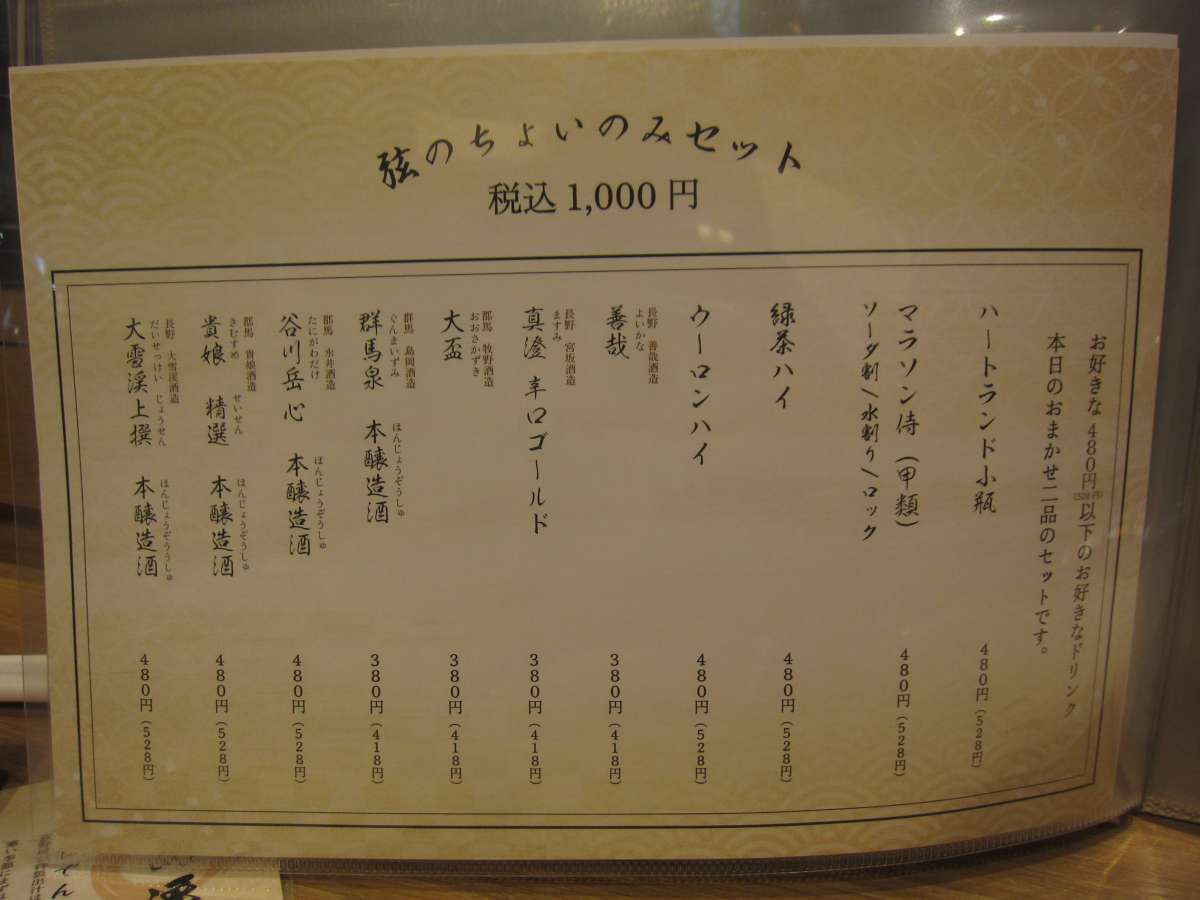 弦のちょいのみセット
税込 1,000 円
お好きな 480円(528円)以下のお好きなドリンク
本日のおまかせ二品のセットです。
ハートランド小瓶 480円(528円)
マラソン侍(甲類) 480円(528円)
ソーダ割/水割り/ロック
緑茶ハイ 480円(528円)
ウーロンハイ 480円(528円)
長野 善哉酒造
よいかな
善哉 380円(418円)
長野 宮坂酒造
ますみ
真澄 辛口ゴールド 380円(418円)
群馬 牧野酒造
おおさかずき
大盃 380円(418円)
群馬 島岡酒造
ぐんまいずみ ほんじょうぞうしゅ
群馬泉 本醸造酒 380円(418円)
群馬 永井酒造
たにがわだけ ほんじょうぞうしゅ
谷川岳 心 本醸造酒 480円(528円)
群馬 貴娘酒造
きむすめ せいせん ほんじょうぞうしゅ
貴娘 精選 本醸造酒 480円(528円)
長野 大雪渓酒造
だいせっけい じょうせん ほんじょうぞううしゅ
大雪渓上撰 本醸造酒 480円(528円)